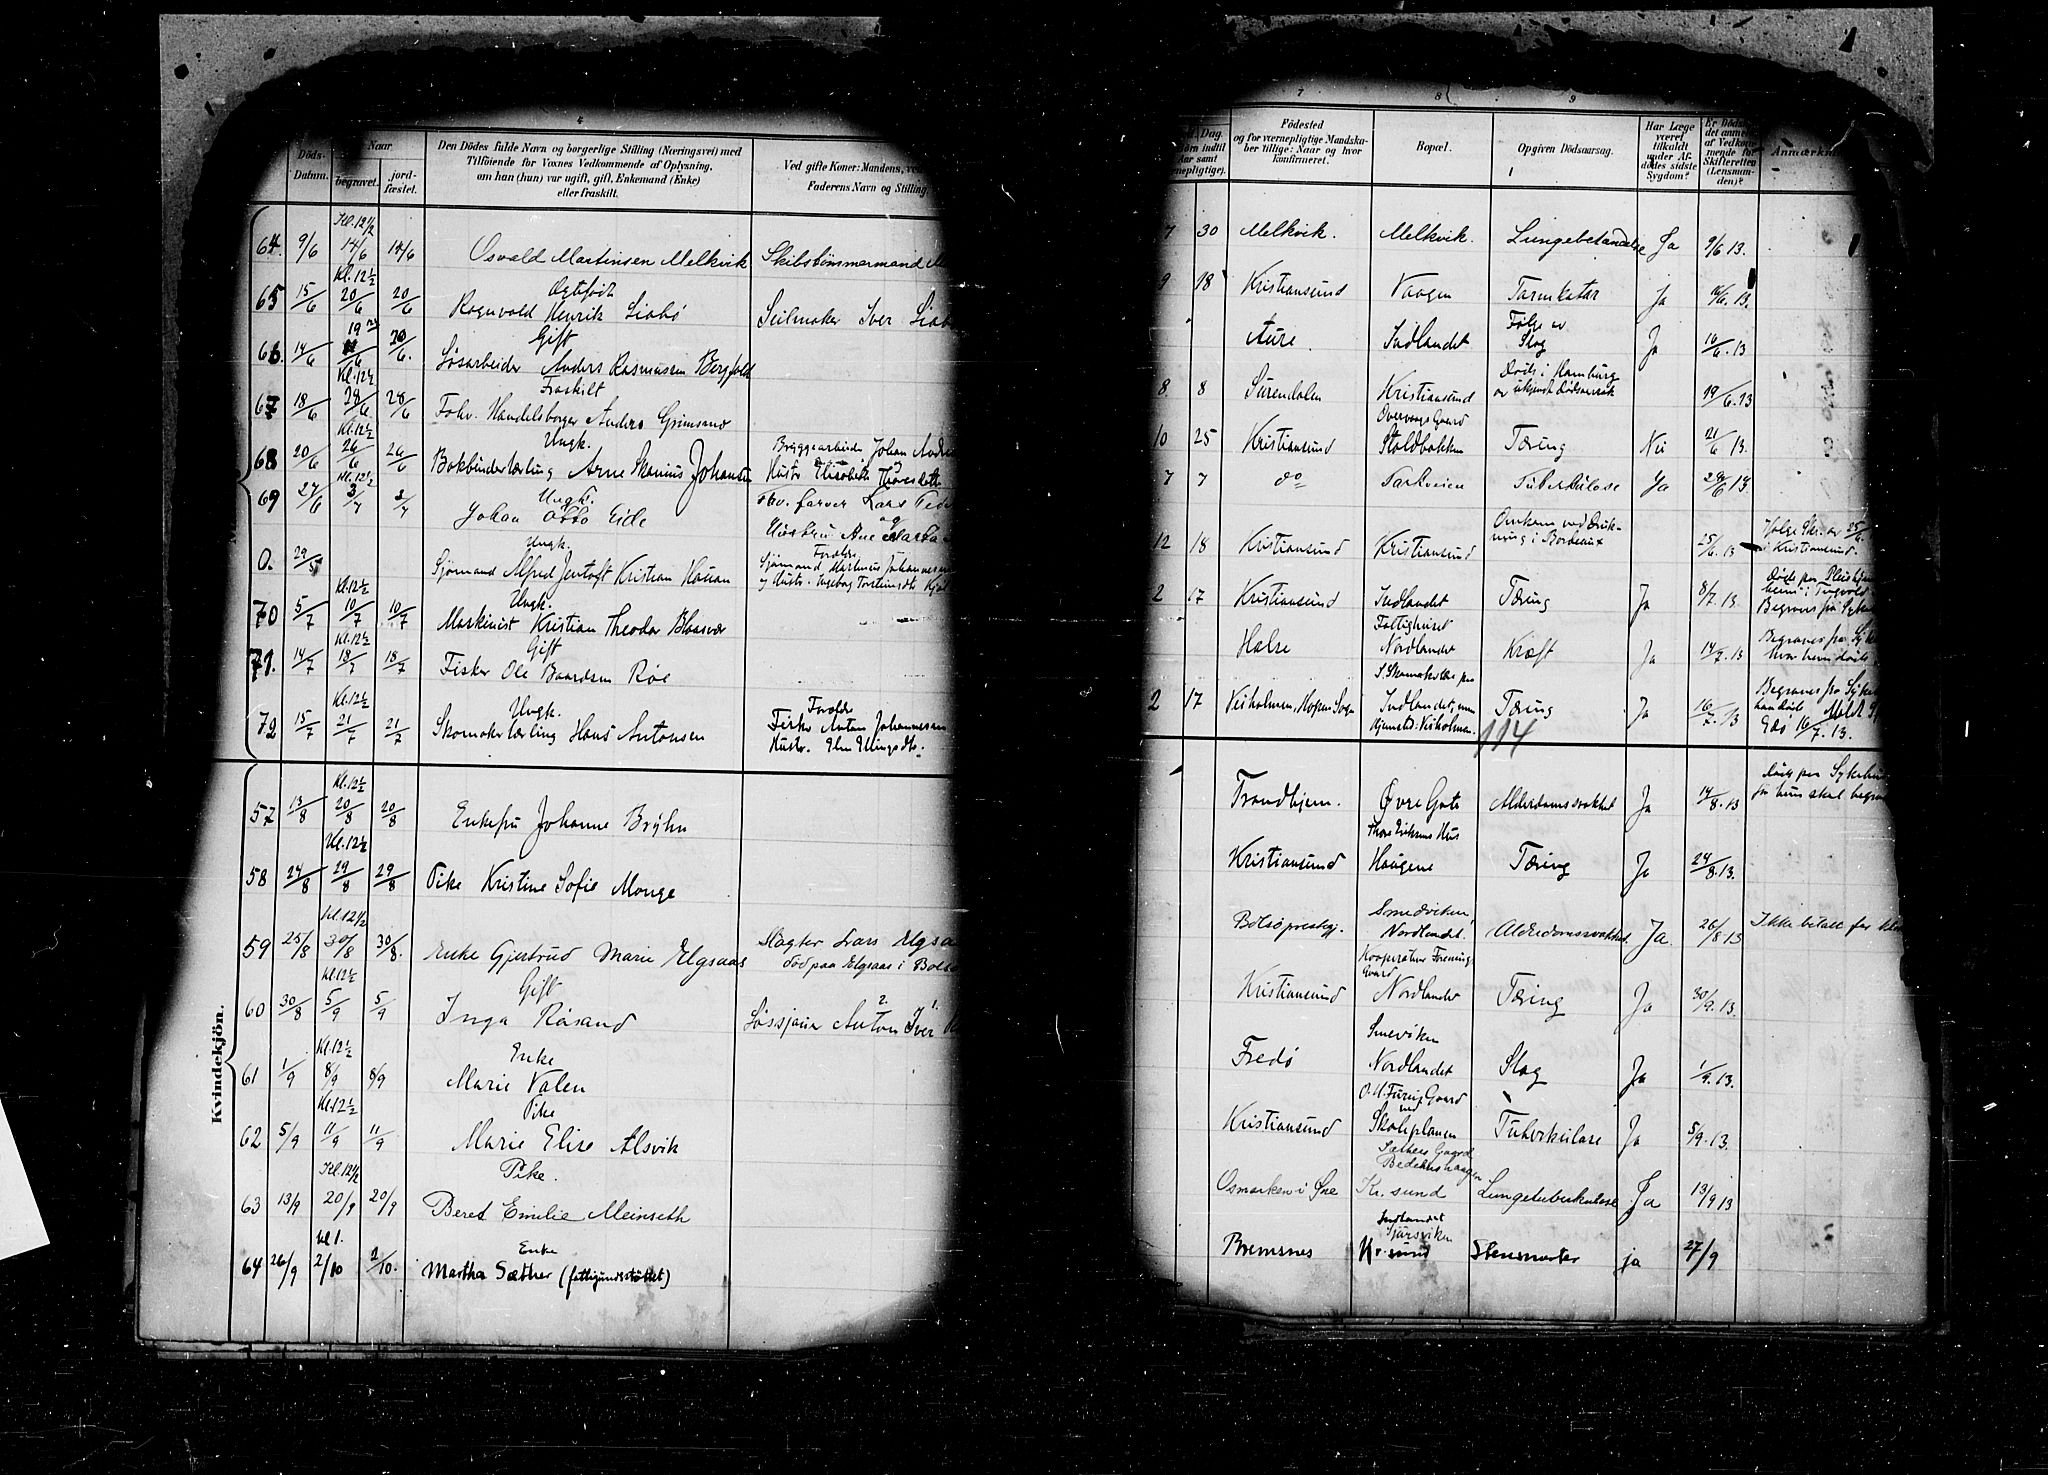 4
Döds-
Datum.
Naar
begravet.
jord-
fæstet.
Den Dödes fulde Navn og borgerlige Stilling (Næringsvei) med
Tilföiende for Voxnes Vedkommende af Oplysning,
om han (hun) var ugift, gift, Enkemand (Enke)
eller fraskilt.
Ved gifte Koner: Mandens,
Faderens Navn og Stilling.
Kl. 12 1/2
64. 9/6 14/6 14/6 Osvald Martinsen Melkvik Skibstömmermand
Kl. 12 1/2
Ægtefödt
65 15/6 20/6 20/6 Ragnvald Henrik Siobö Seilmaker Iver
Gift
66. 14/6 20/6. Søsarbeider Anders Rasmussen Bergfald
Kl. 12 1/2
Fraskilt
67 18/6 28/6 28/6 Fohv. Handelsborger Anders Grimsand
Kl. 12 1/2
Ungk.
68 20/6 26/6 26/6 Bokbinderlærling Arne Skanius Johansen
Bryggearbeider Johan
Hustr Elisabeth
Kl. 12 1/2
Ungk.
69 27/6 3/7 3/7 Johan Otto Eide
Fhv. farver Lars
og
Hustru Ane Marta
Ungk.
0. 29/5 Sjømand Alfred Jentoft Kristian Hauan
Forældre
Sjømand Martinus Johannessen
og Hustr. Ingeborg Torsteinsdt.
Kl. 12 1/2
Ungk.
70 5/7 10/7 10/7 Maskinist Kristian Theodor Blaasvær
Kl. 12 1/2
Gift
71. 14/7 18/7 18/7 Fisker Ole Baardsen Røe
Kl. 12 1/2
Ungk.
72 15/7 21/7 21/7 Skomakerlærling Hans Antonsen
Forældre
Fisker Anton Johannessen
Hustr. Elen Ellingsdt.
Kvindekjön.
Kl. 12 1/2
57 13/8 20/8 20/8 Enkefru Johanne Brÿhn
Kl. 12 1/2
58 24/8 29/8 29/8 Pike Kristine Sofie Monge
Kl. 12 1/2
59 25/8 30/8 30/8. Enke Gjertrud Marie Elgsaas
Slagter Lars Elgsa
död paa Elgsaas i Bols
Kl. 12 1/2
Gift
60 30/8 5/9 5/9 Inga Røsand Løssjauer Anton 2. Iver 1.
Kl. 12 1/2
Enke
61 1/9 8/9 8/9 Marie Valen
Kl. 12 1/2
Pike
62 5/9 11/9 11/9 Marie Elise Alsvik
Kl. 12 1/2
Pike.
63 13/9 20/9 20/9 Beret Emilie Meinseth
kl 1.
Enke
64 26/9 2/10 2/10. Martha Sæther (fattigundstøttet)
7 8 9
Dag.
indtil
Aar samt
nepligtige).
Födested
og for værnepligtige Mandska-
ber tillige: Naar og hvor
konfirmeret.
Bopæl.
Opgiven Dödsaarsag.
Har Læge
været
tilkaldt
under Af-
dödes sidste
Sygdom?
Er Dödsfal-
det anmeldt
af Vedkom-
mende for
Skifteretten
(Lensman-
den)?
Anmærkn
7 30 Melkvik. Melkvik. Lungebetændelse Ja 9/6 13.
9 18 Kristiansund Vaagen Tarmkatar Ja 16/6. 13.
Aure. Indlandet Følge av Slag Ja 16/6. 13
8 8 Surendalen Kristiansund Døde i Hamburg
av ukjendt Dødsaarsak 19/6. 13
10 25 Kristiansund Overvaags Gaard
Staldbakken Tæring Nei 21/6 13.
7 7 do Parkveien Tuberkulose Ja 28/6 13.
12 18 Kristiansund Kristiansund Omkom ved druk-
ning i Bordeaux 25/6. 13
Ifølge Skr. av 25/6.
i Kristiansund.
2 17 Kristiansund Indlandet Tæring Ja 8/7. 13.
Døde paa Pleiehjem
Begraves fra Syke
Halse Fattighuset
Nordlandet Kræft Ja 14/7. 13
Begraves fra Syke
hvor han døde
2 17 Veiholmen, Hopen Sogn Indlandet, men
Hjemsted: Veiholmen. Tæring Ja 16/7. 13
Begraves fra Syke
han døde Meldt
16/7. 13.
114
Trondhjem. Øvre Gate Alderdomssvakhet Ja 14/8. 13
døde paa Sykehus
fra hun skal begrav
Kristiansund Thore Eriksens Hus
Haugene Tæring Ja 24/8. 13.
Bolsöprestegj. Smedviken,
Nordlandet. Alderdomssvakhet. Ja. 26/8. 13
Ikke betalt for klo
Kristiansund Kooperative Forenings
Gaard
Nordlandet Tæring Ja 30/9. 13.
Fredö Smevíken
Nordlandet Slag Ja 1/9. 13.
Kristiansund O. M. Furuis Gaard
ved
Skoleplanen Tuberkulose Ja 5/9. 13.
Osmarken i Øre Sæthers Gaard
Bedehushaugen
Kr. sund Lungetuberkulose Ja 13/9 13
Bremsnes Indlandet
Sjursviken
Kr. sund Stensmerter ja 27/9